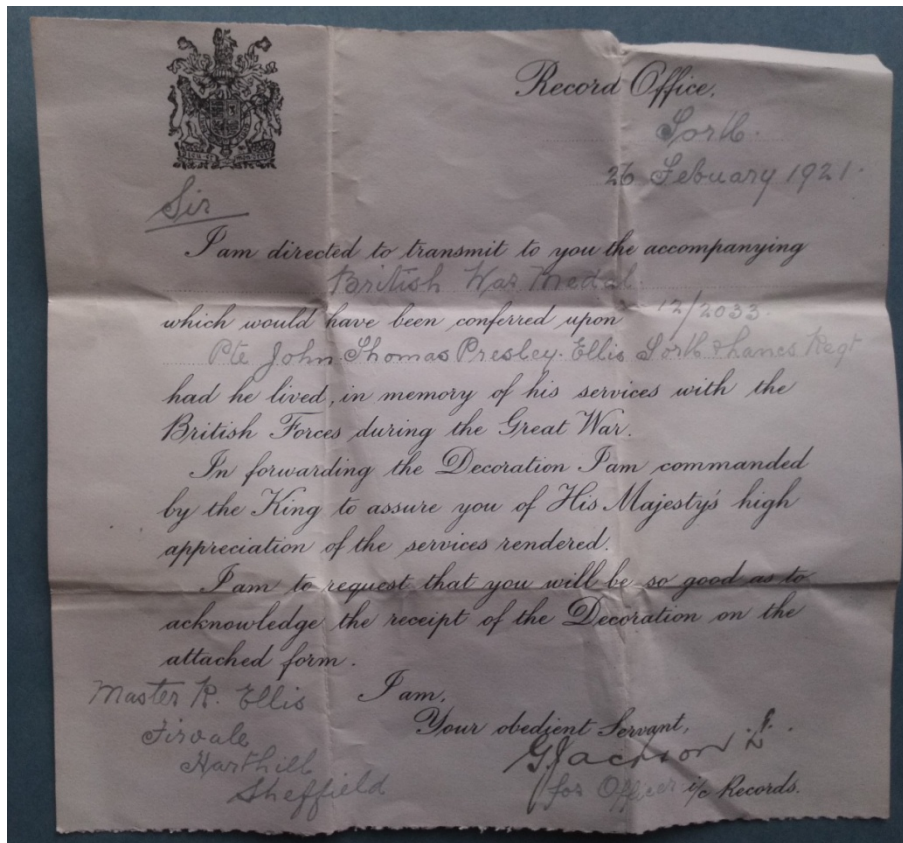 Record Office,
York.
26 Febuary 1921.
Sir
I am directed to transmit to you the accompanying
British War Medal
which would have been conferred upon 12/2033.
Pte John Thomas Presley Ellis York & Lancs Regt
had he lived, in memory of his services with the
British Forces during the Great War.
In forwarding the Decoration I am commanded
by the King to assure you of His Majesty's high
appreciation of the services rendered.
I am to request that you will be so good as to
acknowledge the receipt of the Decoration on the
attached form.
I am,
Your obedient Servant,
GJackson Lt.
for Officer i/c Records.
Master R. Ellis
Firvale
Harthill
Sheffield